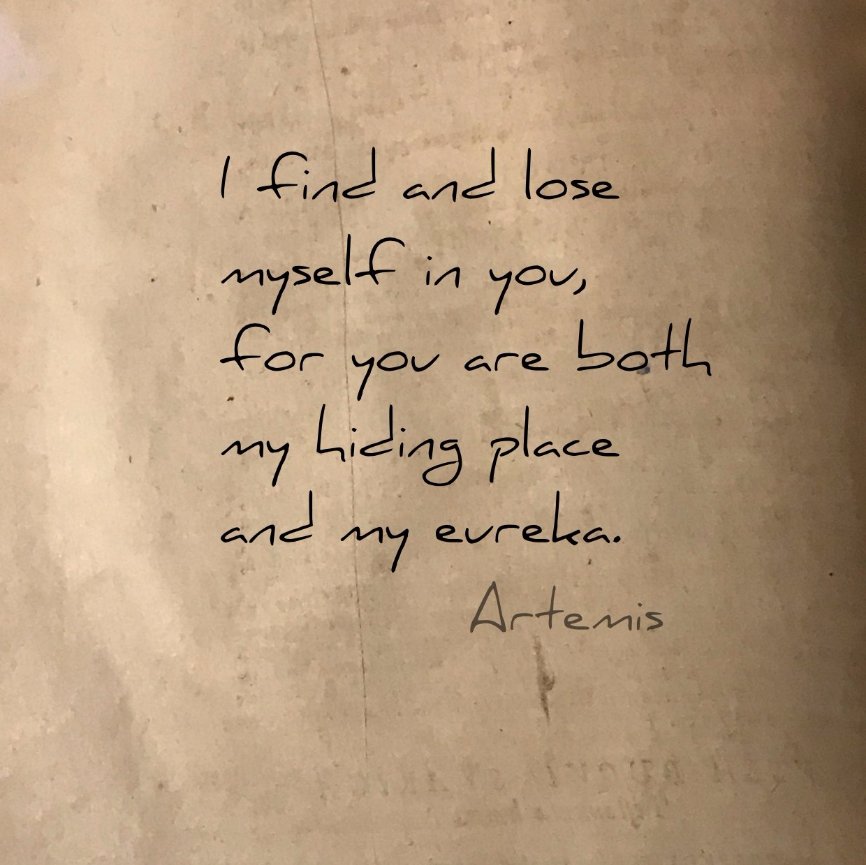 I find and lose
myself in you,
for you are both
my hiding place
and my eureka.
Artemis